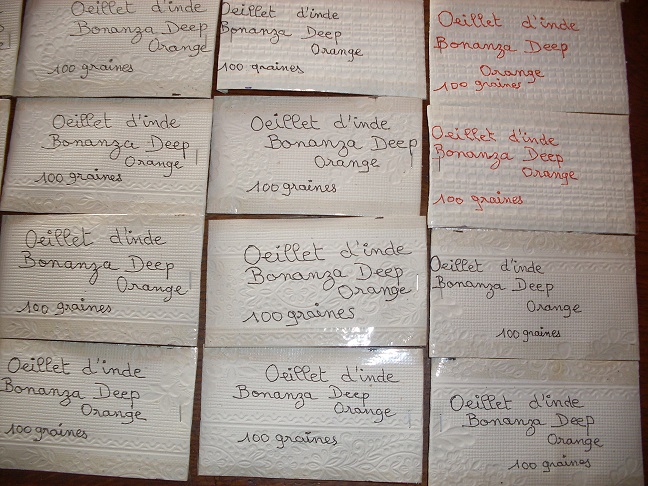 Oeillet d'inde
Bonanza Deep
Orange
100 graines
Oeillet d'inde
Bonanza Deep
Orange
100 graines
Oeillet d'inde
Bonanza Deep
Orange
100 graines
Oeillet d'inde
Bonanza Deep
Orange
100 graines
Oeillet d'inde
Bonanza Deep
Orange
100 graines
Oeillet d'inde
Bonanza Deep
Orange
100 graines
Oeillet d'inde
Bonanza Deep
Orange
100 graines
Oeillet d'inde
Bonanza Deep
Orange
100 graines
Oeillet d'inde
Bonanza Deep
Orange
100 graines
Oeillet d'inde
Bonanza Deep
Orange
100 graines
Oeillet d'inde
Bonanza Deep
Orange
100 graines
Oeillet d'inde
Bonanza Deep
Orange
100 graines